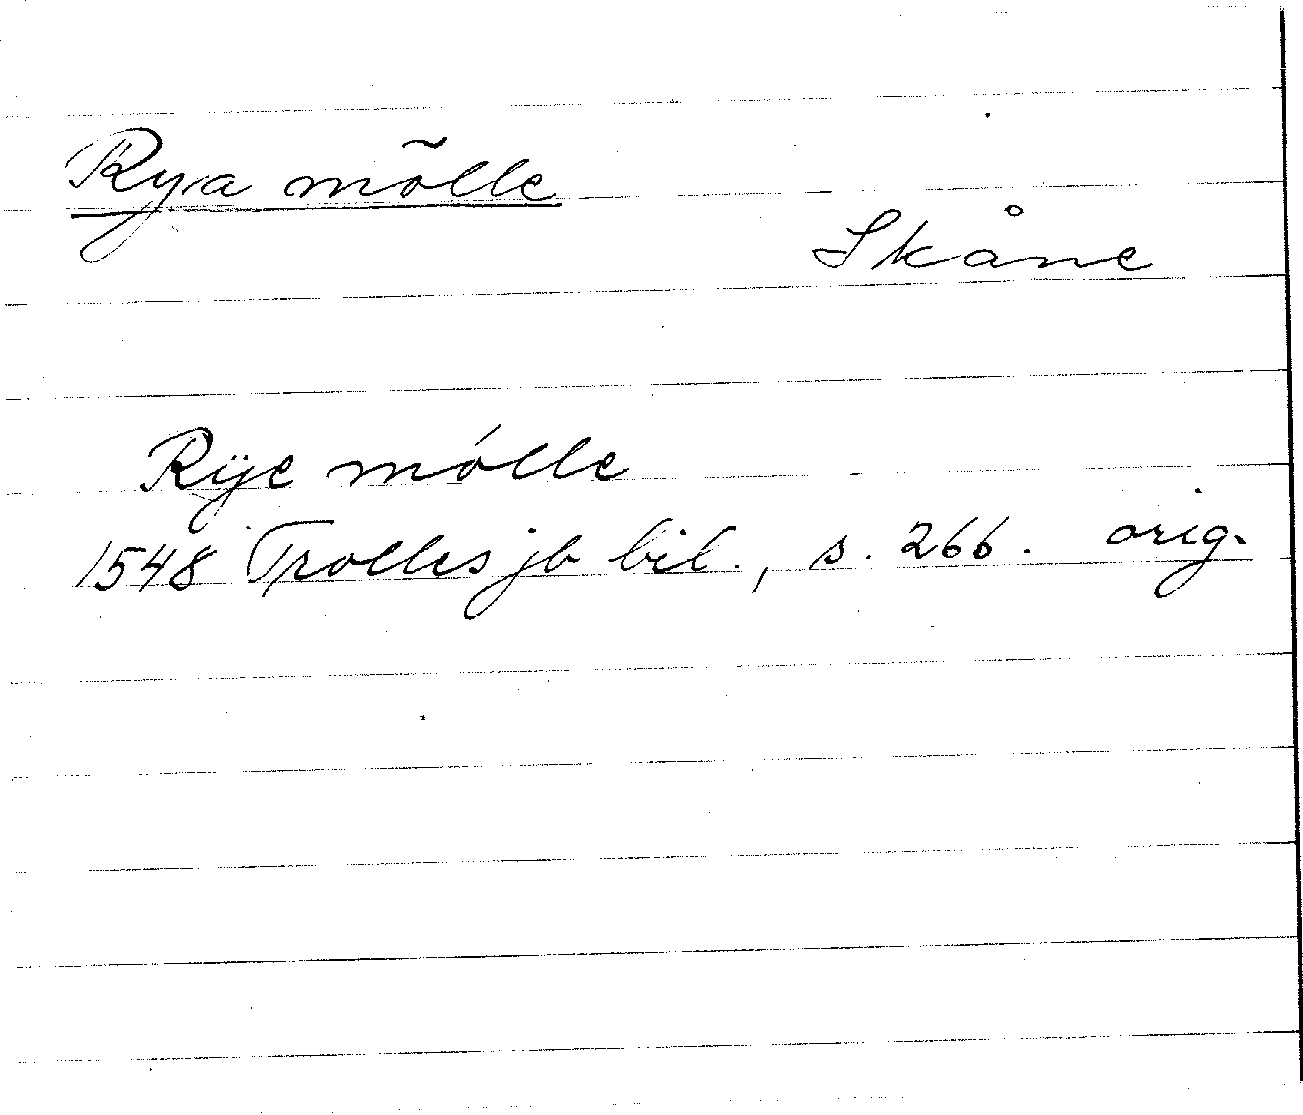 Rya mölle
Skåne
Rÿe mólle
1548 Trolles jb bil., s. 266. orig.